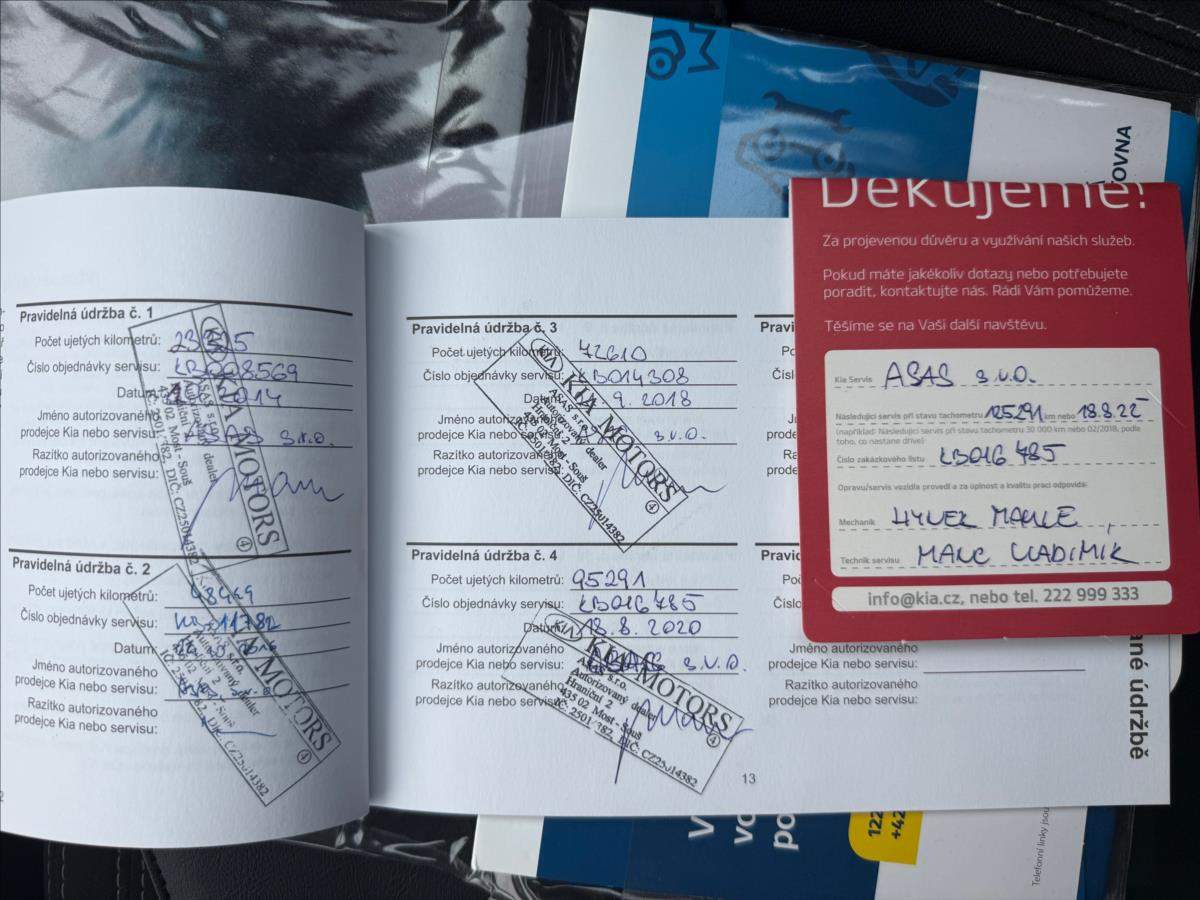 Pravidelná údržba č. 1
Počet ujetých kilometrů:
Číslo objednávky servisu: KB008569
Datum: 2014
Jméno autorizovaného
prodejce Kia nebo servisu: s.r.o.
Razítko autorizovaného
prodejce Kia nebo servisu:
KIA MOTORS
ASAS s.r.o.
Autorizovaný dealer
435 02 Most - Souš
DIČ: CZ25014382
4
Pravidelná údržba č. 2
Počet ujetých kilometrů: 48449
Číslo objednávky servisu: 11782
Datum:
Jméno autorizovaného
prodejce Kia nebo servisu:
Razítko autorizovaného
prodejce Kia nebo servisu:
KIA MOTORS
s.r.o.
Autorizovaný dealer
Hraniční 2
Most - Souš
DIČ: CZ25014382
4
Pravidelná údržba č. 3
Počet ujetých kilometrů: 72610
Číslo objednávky servisu: KB014308
Datum: 9. 2018
Jméno autorizovaného
prodejce Kia nebo servisu: s.r.o.
Razítko autorizovaného
prodejce Kia nebo servisu:
KIA KIA MOTORS
ASAS s.r.o.
Autorizovaný dealer
Hraniční 2
435 02 Most - Souš
DIČ: CZ25014382
4
Pravidelná údržba č. 4
Počet ujetých kilometrů: 95291
Číslo objednávky servisu: KB016785
Datum: 18. 8. 2020
Jméno autorizovaného
prodejce Kia nebo servisu: ASAS s.r.o.
Razítko autorizovaného
prodejce Kia nebo servisu:
KIA KIA MOTORS
ASAS s.r.o.
Autorizovaný dealer
Hraniční 2
435 02 Most - Souš
DIČ: CZ25014382
4
13
Jméno autorizovaného
prodejce Kia nebo servisu:
Razítko autorizovaného
prodejce Kia nebo servisu:
Děkujeme!
Za projevenou důvěru a využívání našich služeb.
Pokud máte jakékoliv dotazy nebo potřebujete
poradit, kontaktujte nás. Rádi Vám pomůžeme.
Těšíme se na Vaši další navštěvu.
Kia Servis ASAS s.r.o.
Následující servis při stavu tachometru 125291 km nebo 18.8.22
(například: Následující servis při stavu tachometru 30 000 km nebo 02/2018, podle
toho, co nastane dříve)
Číslo zakázkového listu KB016785
Opravu/servis vozidla provedl a za úplnost a kvalitu prací odpovídá:
Mechanik HYNEK
Technik servisu VLADIMÍR
info@kia.cz, nebo tel. 222 999 333
údržbě
122
+42
Telefonní linky jsou